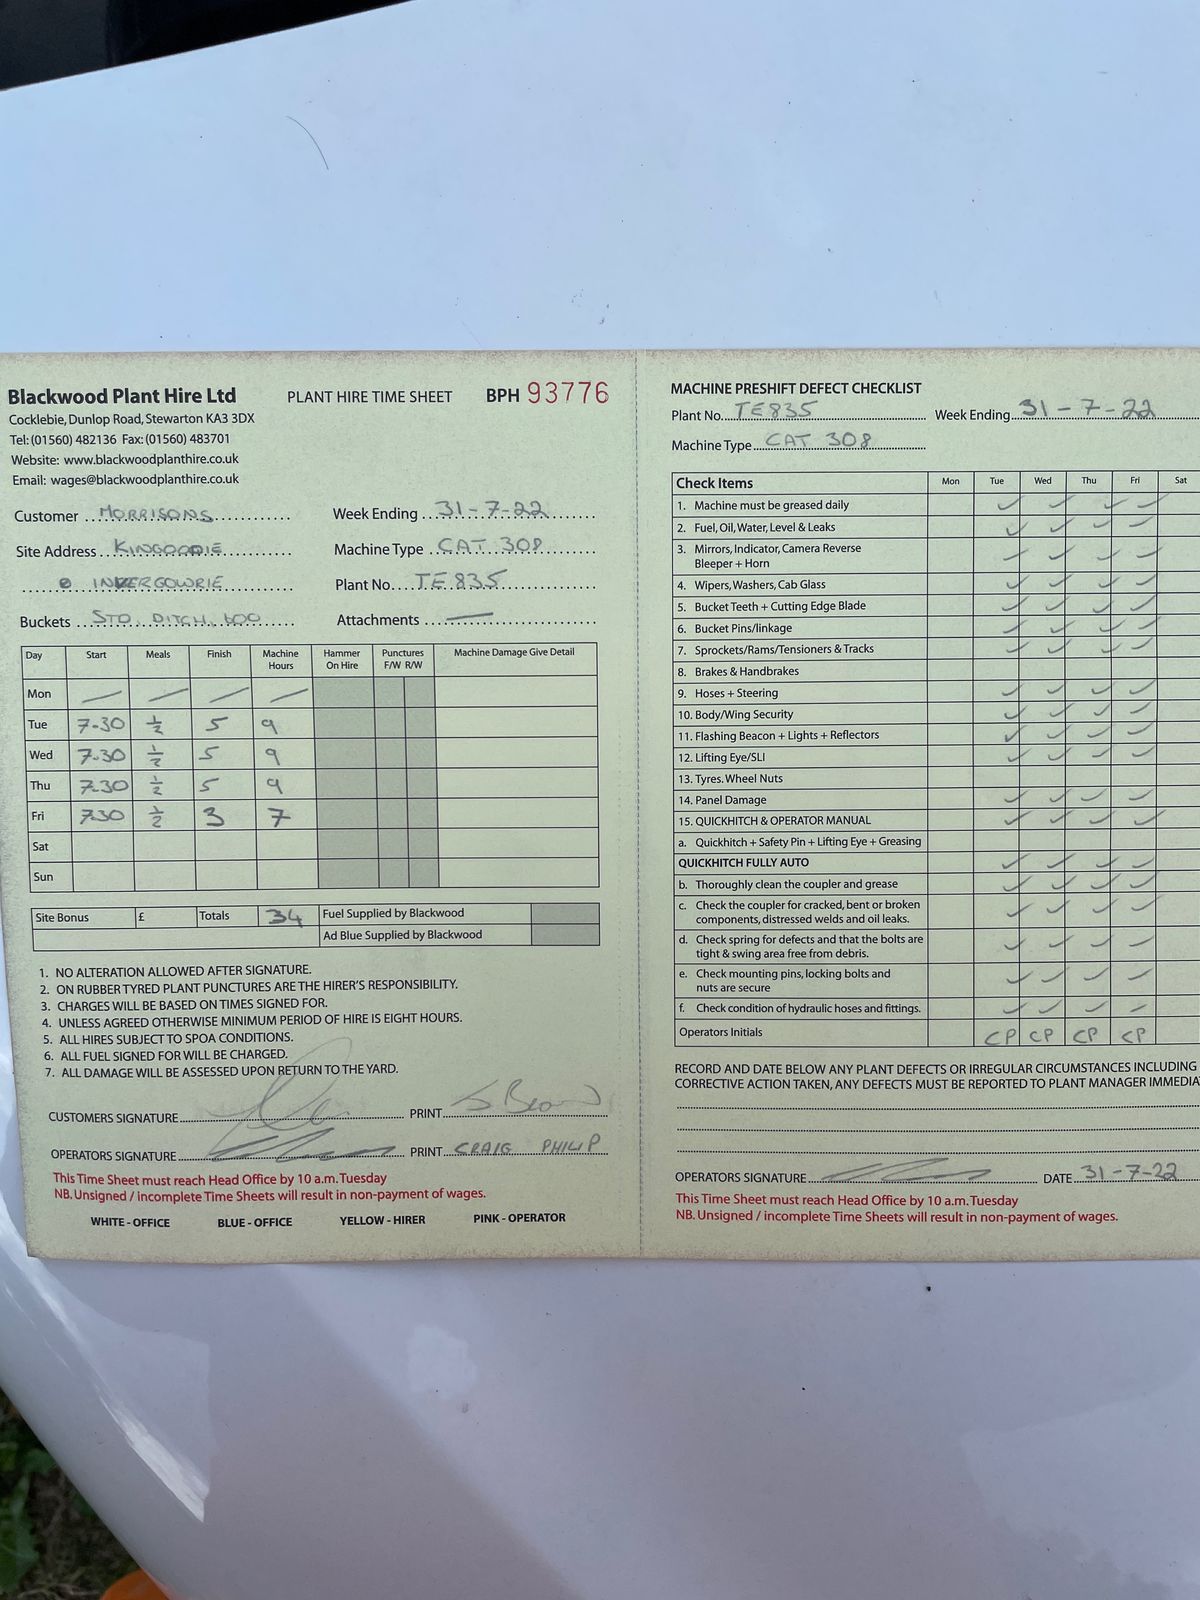 Blackwood Plant Hire Ltd
PLANT HIRE TIME SHEET
BPH 93776
Cocklebie, Dunlop Road, Stewarton KA3 3DX
Tel: (01560) 482136 Fax: (01560) 483701
Website: www.blackwoodplanthire.co.uk
Email: wages@blackwoodplanthire.co.uk
Customer MORRISONS
Week Ending 31-7-22
Site Address KINGOODIE
Machine Type CAT 308
INVERGOWRIE
Plant No. TE835
Buckets STD. DITCH. 600
Attachments —
Day Start Meals Finish Machine Hours Hammer On Hire Punctures F/W R/W Machine Damage Give Detail
Mon — — — —
Tue 7-30 ½ 5 9
Wed 7-30 ½ 5 9
Thu 7-30 ½ 5 9
Fri 7-30 ½ 3 7
Sat
Sun
Site Bonus £ Totals 34 Fuel Supplied by Blackwood
Ad Blue Supplied by Blackwood
1. NO ALTERATION ALLOWED AFTER SIGNATURE.
2. ON RUBBER TYRED PLANT PUNCTURES ARE THE HIRER'S RESPONSIBILITY.
3. CHARGES WILL BE BASED ON TIMES SIGNED FOR.
4. UNLESS AGREED OTHERWISE MINIMUM PERIOD OF HIRE IS EIGHT HOURS.
5. ALL HIRES SUBJECT TO SPOA CONDITIONS.
6. ALL FUEL SIGNED FOR WILL BE CHARGED.
7. ALL DAMAGE WILL BE ASSESSED UPON RETURN TO THE YARD.
CUSTOMERS SIGNATURE PRINT
OPERATORS SIGNATURE PRINT CRAIG PHILIP
This Time Sheet must reach Head Office by 10 a.m. Tuesday
NB. Unsigned / incomplete Time Sheets will result in non-payment of wages.
WHITE - OFFICE BLUE - OFFICE YELLOW - HIRER PINK - OPERATOR
MACHINE PRESHIFT DEFECT CHECKLIST
Plant No. TE835 Week Ending 31-7-22
Machine Type CAT 308
Check Items Mon Tue Wed Thu Fri Sat
1. Machine must be greased daily ✓ ✓ ✓ ✓
2. Fuel, Oil, Water, Level & Leaks ✓ ✓ ✓ ✓
3. Mirrors, Indicator, Camera Reverse
Bleeper + Horn ✓ ✓ ✓ ✓
4. Wipers, Washers, Cab Glass ✓ ✓ ✓ ✓
5. Bucket Teeth + Cutting Edge Blade ✓ ✓ ✓ ✓
6. Bucket Pins/linkage ✓ ✓ ✓ ✓
7. Sprockets/Rams/Tensioners & Tracks ✓ ✓ ✓ ✓
8. Brakes & Handbrakes
9. Hoses + Steering ✓ ✓ ✓ ✓
10. Body/Wing Security ✓ ✓ ✓ ✓
11. Flashing Beacon + Lights + Reflectors ✓ ✓ ✓ ✓
12. Lifting Eye/SLI ✓ ✓ ✓ ✓
13. Tyres. Wheel Nuts
14. Panel Damage ✓ ✓ ✓ ✓
15. QUICKHITCH & OPERATOR MANUAL ✓ ✓ ✓ ✓
a. Quickhitch + Safety Pin + Lifting Eye + Greasing
QUICKHITCH FULLY AUTO ✓ ✓ ✓ ✓
b. Thoroughly clean the coupler and grease ✓ ✓ ✓ ✓
c. Check the coupler for cracked, bent or broken
components, distressed welds and oil leaks. ✓ ✓ ✓ ✓
d. Check spring for defects and that the bolts are
tight & swing area free from debris. ✓ ✓ ✓ ✓
e. Check mounting pins, locking bolts and
nuts are secure ✓ ✓ ✓ ✓
f. Check condition of hydraulic hoses and fittings. ✓ ✓ ✓ ✓
Operators Initials CP CP CP CP
RECORD AND DATE BELOW ANY PLANT DEFECTS OR IRREGULAR CIRCUMSTANCES INCLUDING
CORRECTIVE ACTION TAKEN, ANY DEFECTS MUST BE REPORTED TO PLANT MANAGER IMMEDIA
OPERATORS SIGNATURE DATE 31-7-22
This Time Sheet must reach Head Office by 10 a.m. Tuesday
NB. Unsigned / incomplete Time Sheets will result in non-payment of wages.